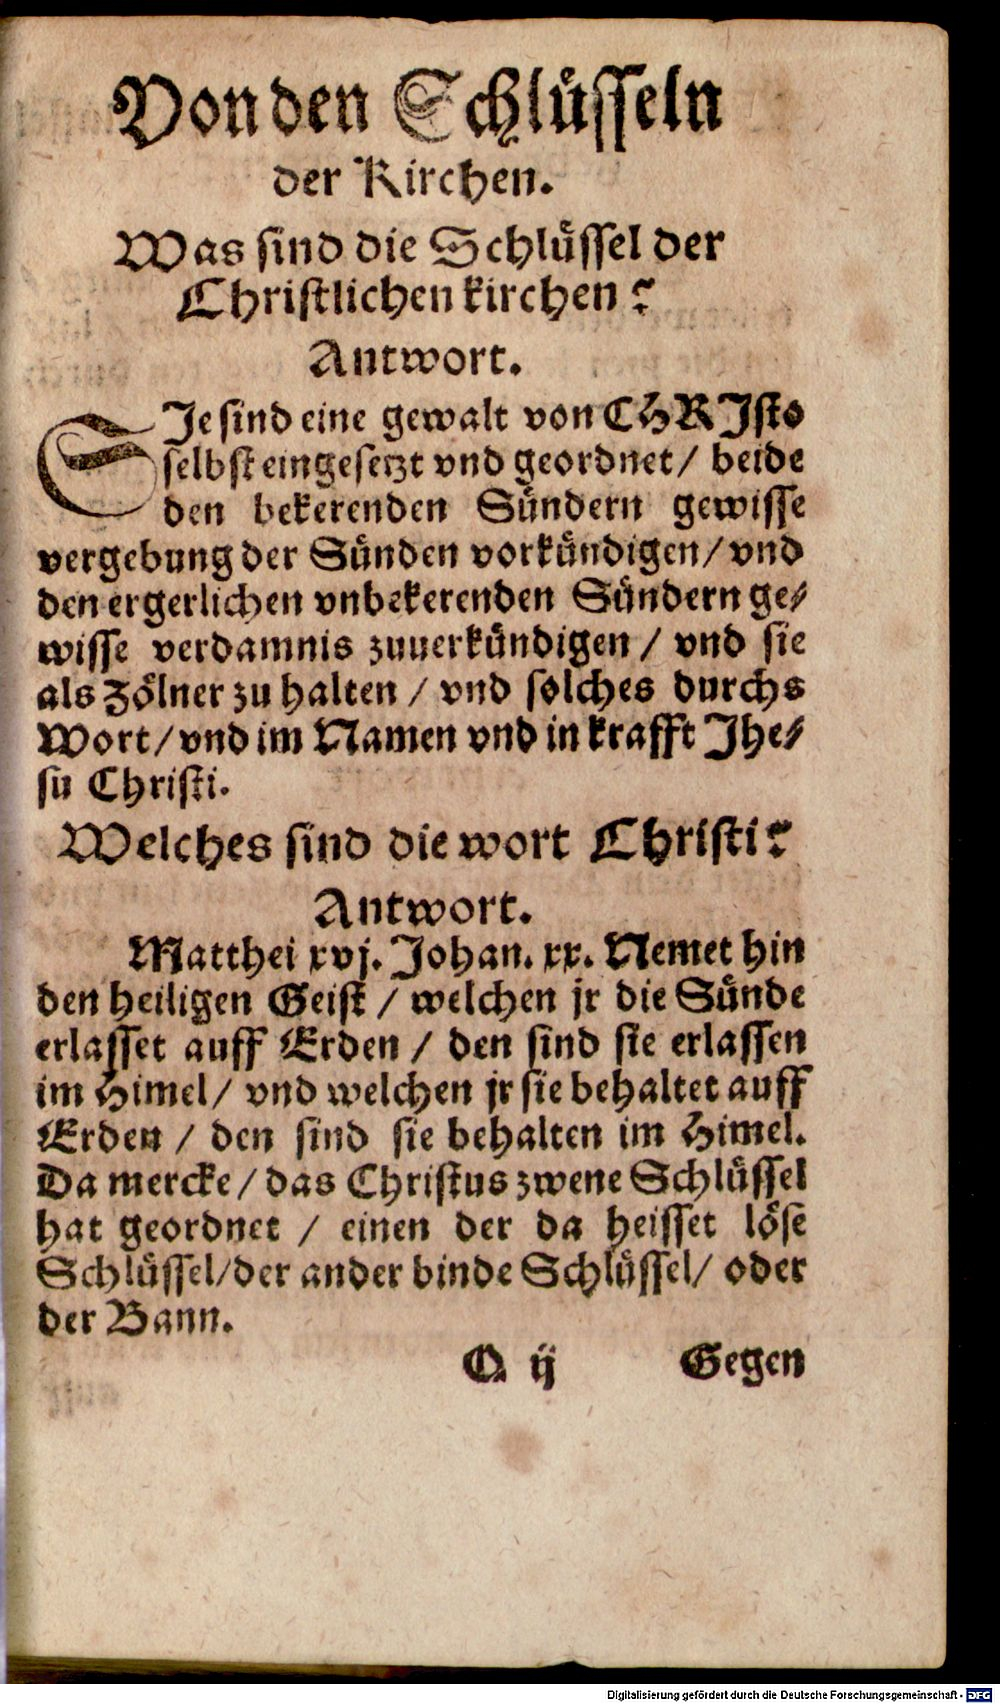 Von den Schlüsseln
der Kirchen.
Was sind die Schlüssel der
Christlichen kirchen?
Antwort.
SJe sind eine gewalt von CHRJsto
selbst eingesetzt vnd geordnet/ beide
den bekerenden Sündern gewisse
vergebung der Sünden vorkündigen/ vnd
den ergerlichen vnbekerenden Sündern ge-
wisse verdamnis zuuerkündigen / vnd sie
als Zölner zu halten / vnd solches durchs
Wort/ vnd im Namen vnd in krafft Jhe-
su Christi.
Welches sind die wort Christi?
Antwort.
Matthei xvj. Johan. xx. Nemet hin
den heiligen Geist / welchen jr die Sünde
erlasset auff Erden / den sind sie erlassen
im Himel/ vnd welchen jr sie behaltet auff
Erden / den sind sie behalten im Himel.
Da mercke/ das Christus zwene Schlüssel
hat geordnet / einen der da heisset löse
Schlüssel/ der ander binde Schlüssel/ oder
der Bann.
Q ij Gegen
Digitalisierung gefördert durch die Deutsche Forschungsgemeinschaft - DFG